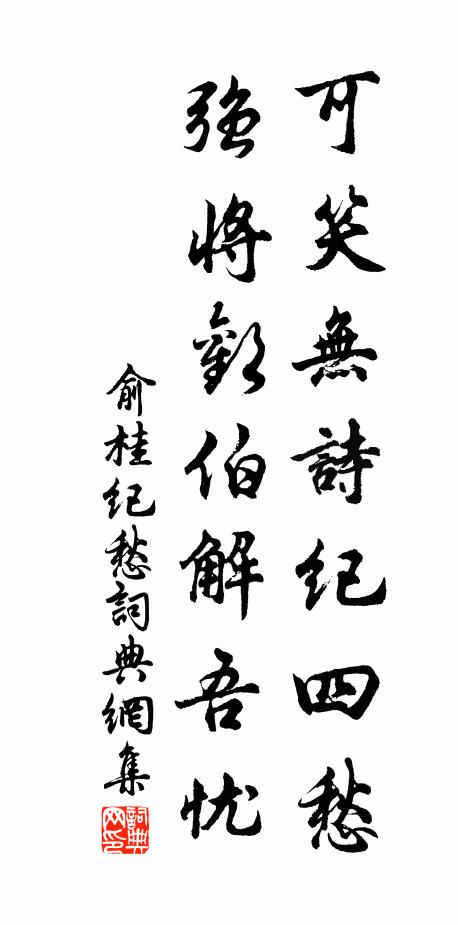 可笑無詩紀四愁
強將歡伯解吾忧
俞桂紀愁詞典網集
詞典网印